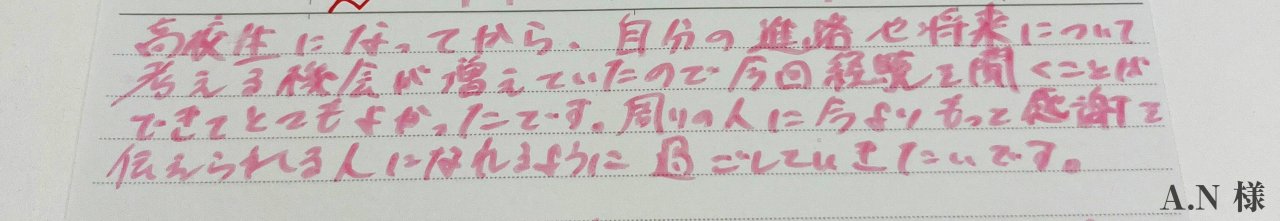 高校生になってから、自分の進路や将来について
考える機会が増えていたので今回経験を聞くことが
できてとてもよかったです。周りの人に今よりもっと感謝を
伝えられる人になれるように過ごしていきたいです。
A.N 様